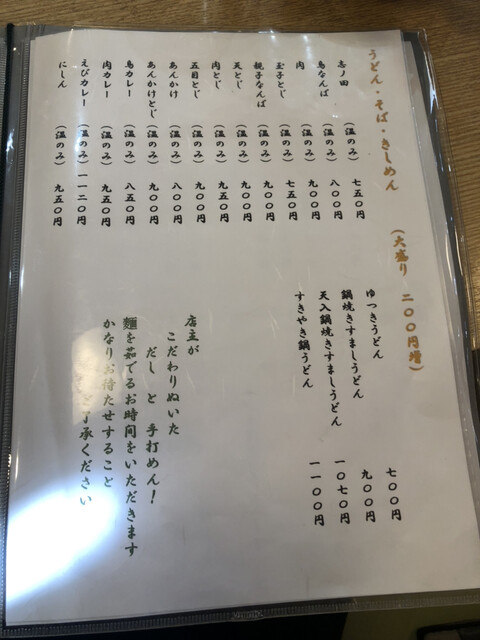 うどん・そば・きしめん （大盛り 二〇〇円増）
志ノ田 （温のみ） 七五〇円
鳥なんば （温のみ） 八〇〇円
肉 （温のみ） 九〇〇円
玉子とじ （温のみ） 七五〇円
親子なんば （温のみ） 九〇〇円
天とじ （温のみ） 九〇〇円
肉とじ （温のみ） 九五〇円
五目とじ （温のみ） 九〇〇円
あんかけ （温のみ） 八〇〇円
あんかけとじ （温のみ） 九〇〇円
鳥カレー （温のみ） 八五〇円
肉カレー （温のみ） 九五〇円
えびカレー （温のみ） 一一二〇円
にしん （温のみ） 九五〇円
ゆつきうどん 七〇〇円
鍋焼きすましうどん 九〇〇円
天入鍋焼きすましうどん 一〇七〇円
すきやき鍋うどん 一一〇〇円
店主が
こだわりぬいた
だし と 手打めん！
麺を茹でるお時間をいただきます
かなりお待たせすること
了承ください